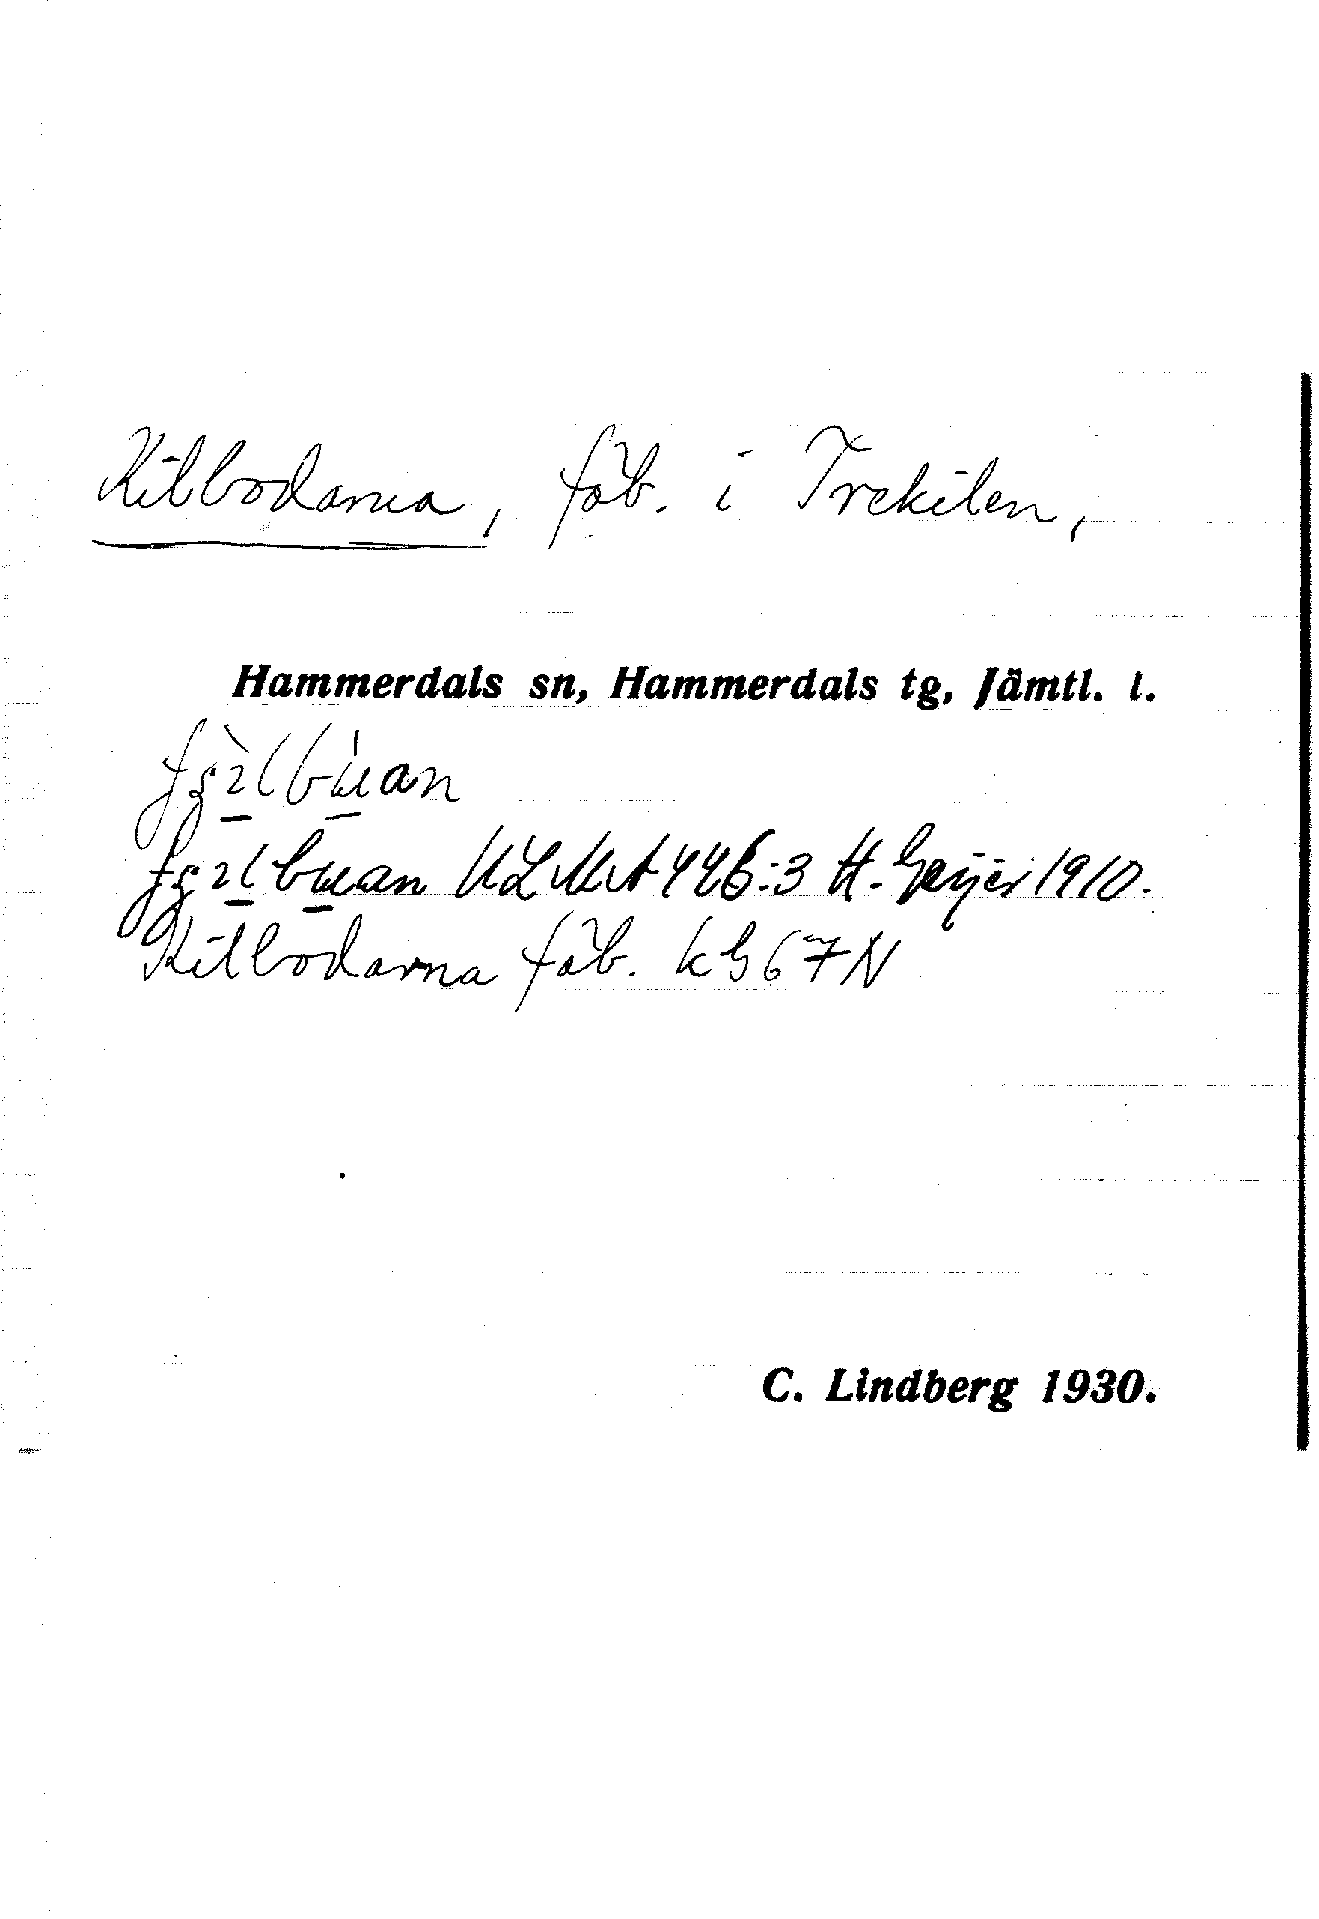 Kilbodarna, fäb. i Trekilen,
Hammerdals sn, Hammerdals tg, Jämtl. l.
ULMA 446:3 H. Geijer 1910.
Kilbodarna fäb. k G 67 N
C. Lindberg 1930.